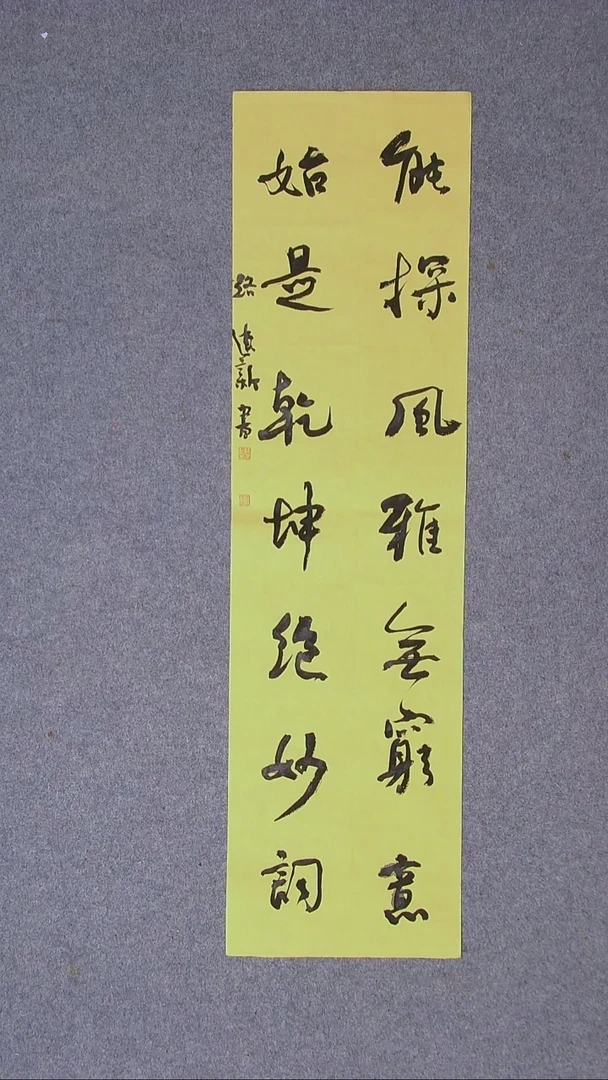 能探風雅無窮意
始是乾坤絕妙詞
書